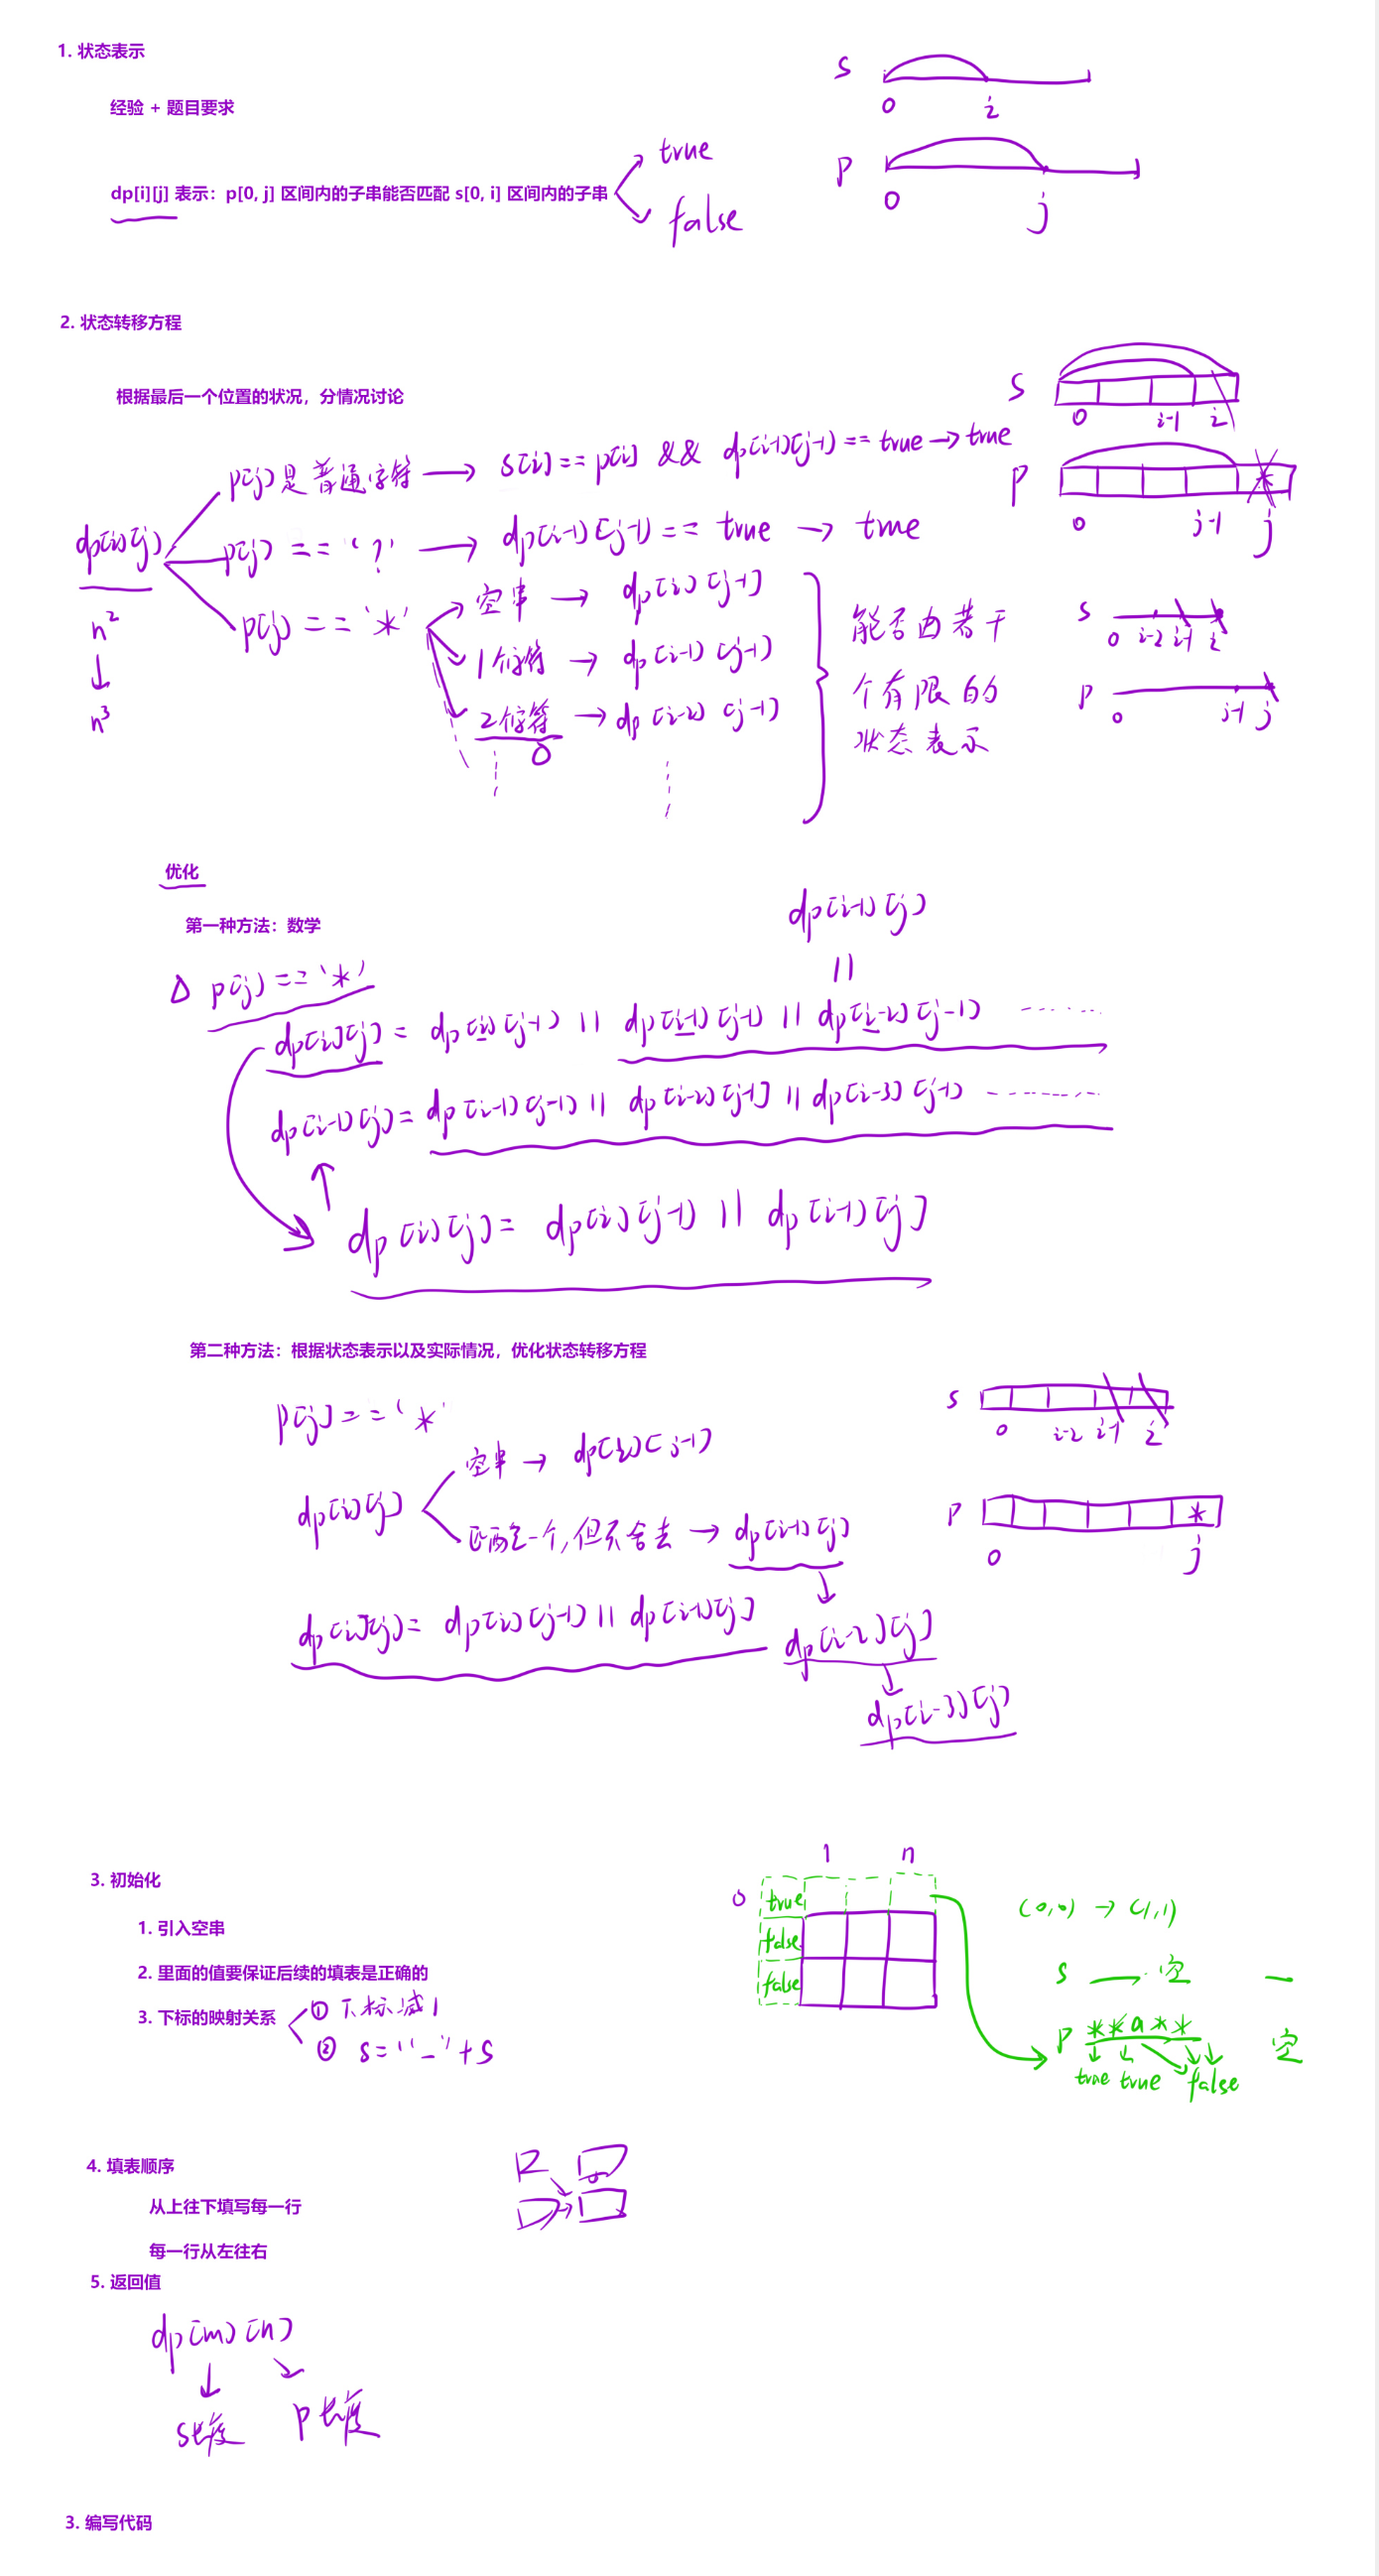 1. 状态表示
s
0 i
经验 + 题目要求
p
0 j
dp[i][j] 表示：p[0, j] 区间内的子串能否匹配 s[0, i] 区间内的子串
true
false
2. 状态转移方程
根据最后一个位置的状况，分情况讨论
s
0 i-1 i
p *
0 j-1 j
dp[i][j]
n²
n³
p[j]是普通字符 → s[i] == p[i] && dp[i-1][j-1] == true → true
p[j] == '?' → dp[i-1][j-1] == true → true
p[j] == '*'
空串 → dp[i][j-1]
1个字符 → dp[i-1][j-1]
2个字符 → dp[i-2][j-1]
能否由若干
个有限的
状态表示
s
0 i-2 i-1 i
p
0 j-1 j
优化
第一种方法：数学
dp[i-1][j]
||
△ p[j] == '*'
dp[i][j] = dp[i][j-1] || dp[i-1][j-1] || dp[i-2][j-1] ......
dp[i-1][j] = dp[i-1][j-1] || dp[i-2][j-1] || dp[i-3][j-1] ......
dp[i][j] = dp[i][j-1] || dp[i-1][j]
第二种方法：根据状态表示以及实际情况，优化状态转移方程
p[j] == '*'
s
0 i-2 i-1 i
dp[i][j]
空串 → dp[i][j-1]
匹配一个，但不舍去 → dp[i-1][j]
p *
0 j
dp[i][j] = dp[i][j-1] || dp[i-1][j]
dp[i-2][j]
dp[i-3][j]
3. 初始化
1. 引入空串
2. 里面的值要保证后续的填表是正确的
3. 下标的映射关系
① 下标减1
② s = "_" + s
1 n
0 true
false
false
(0,0) → (1,1)
s → 空 —
p **a** 空
true true false
4. 填表顺序
从上往下填写每一行
每一行从左往右
5. 返回值
dp[m][n]
s长度 p长度
3. 编写代码